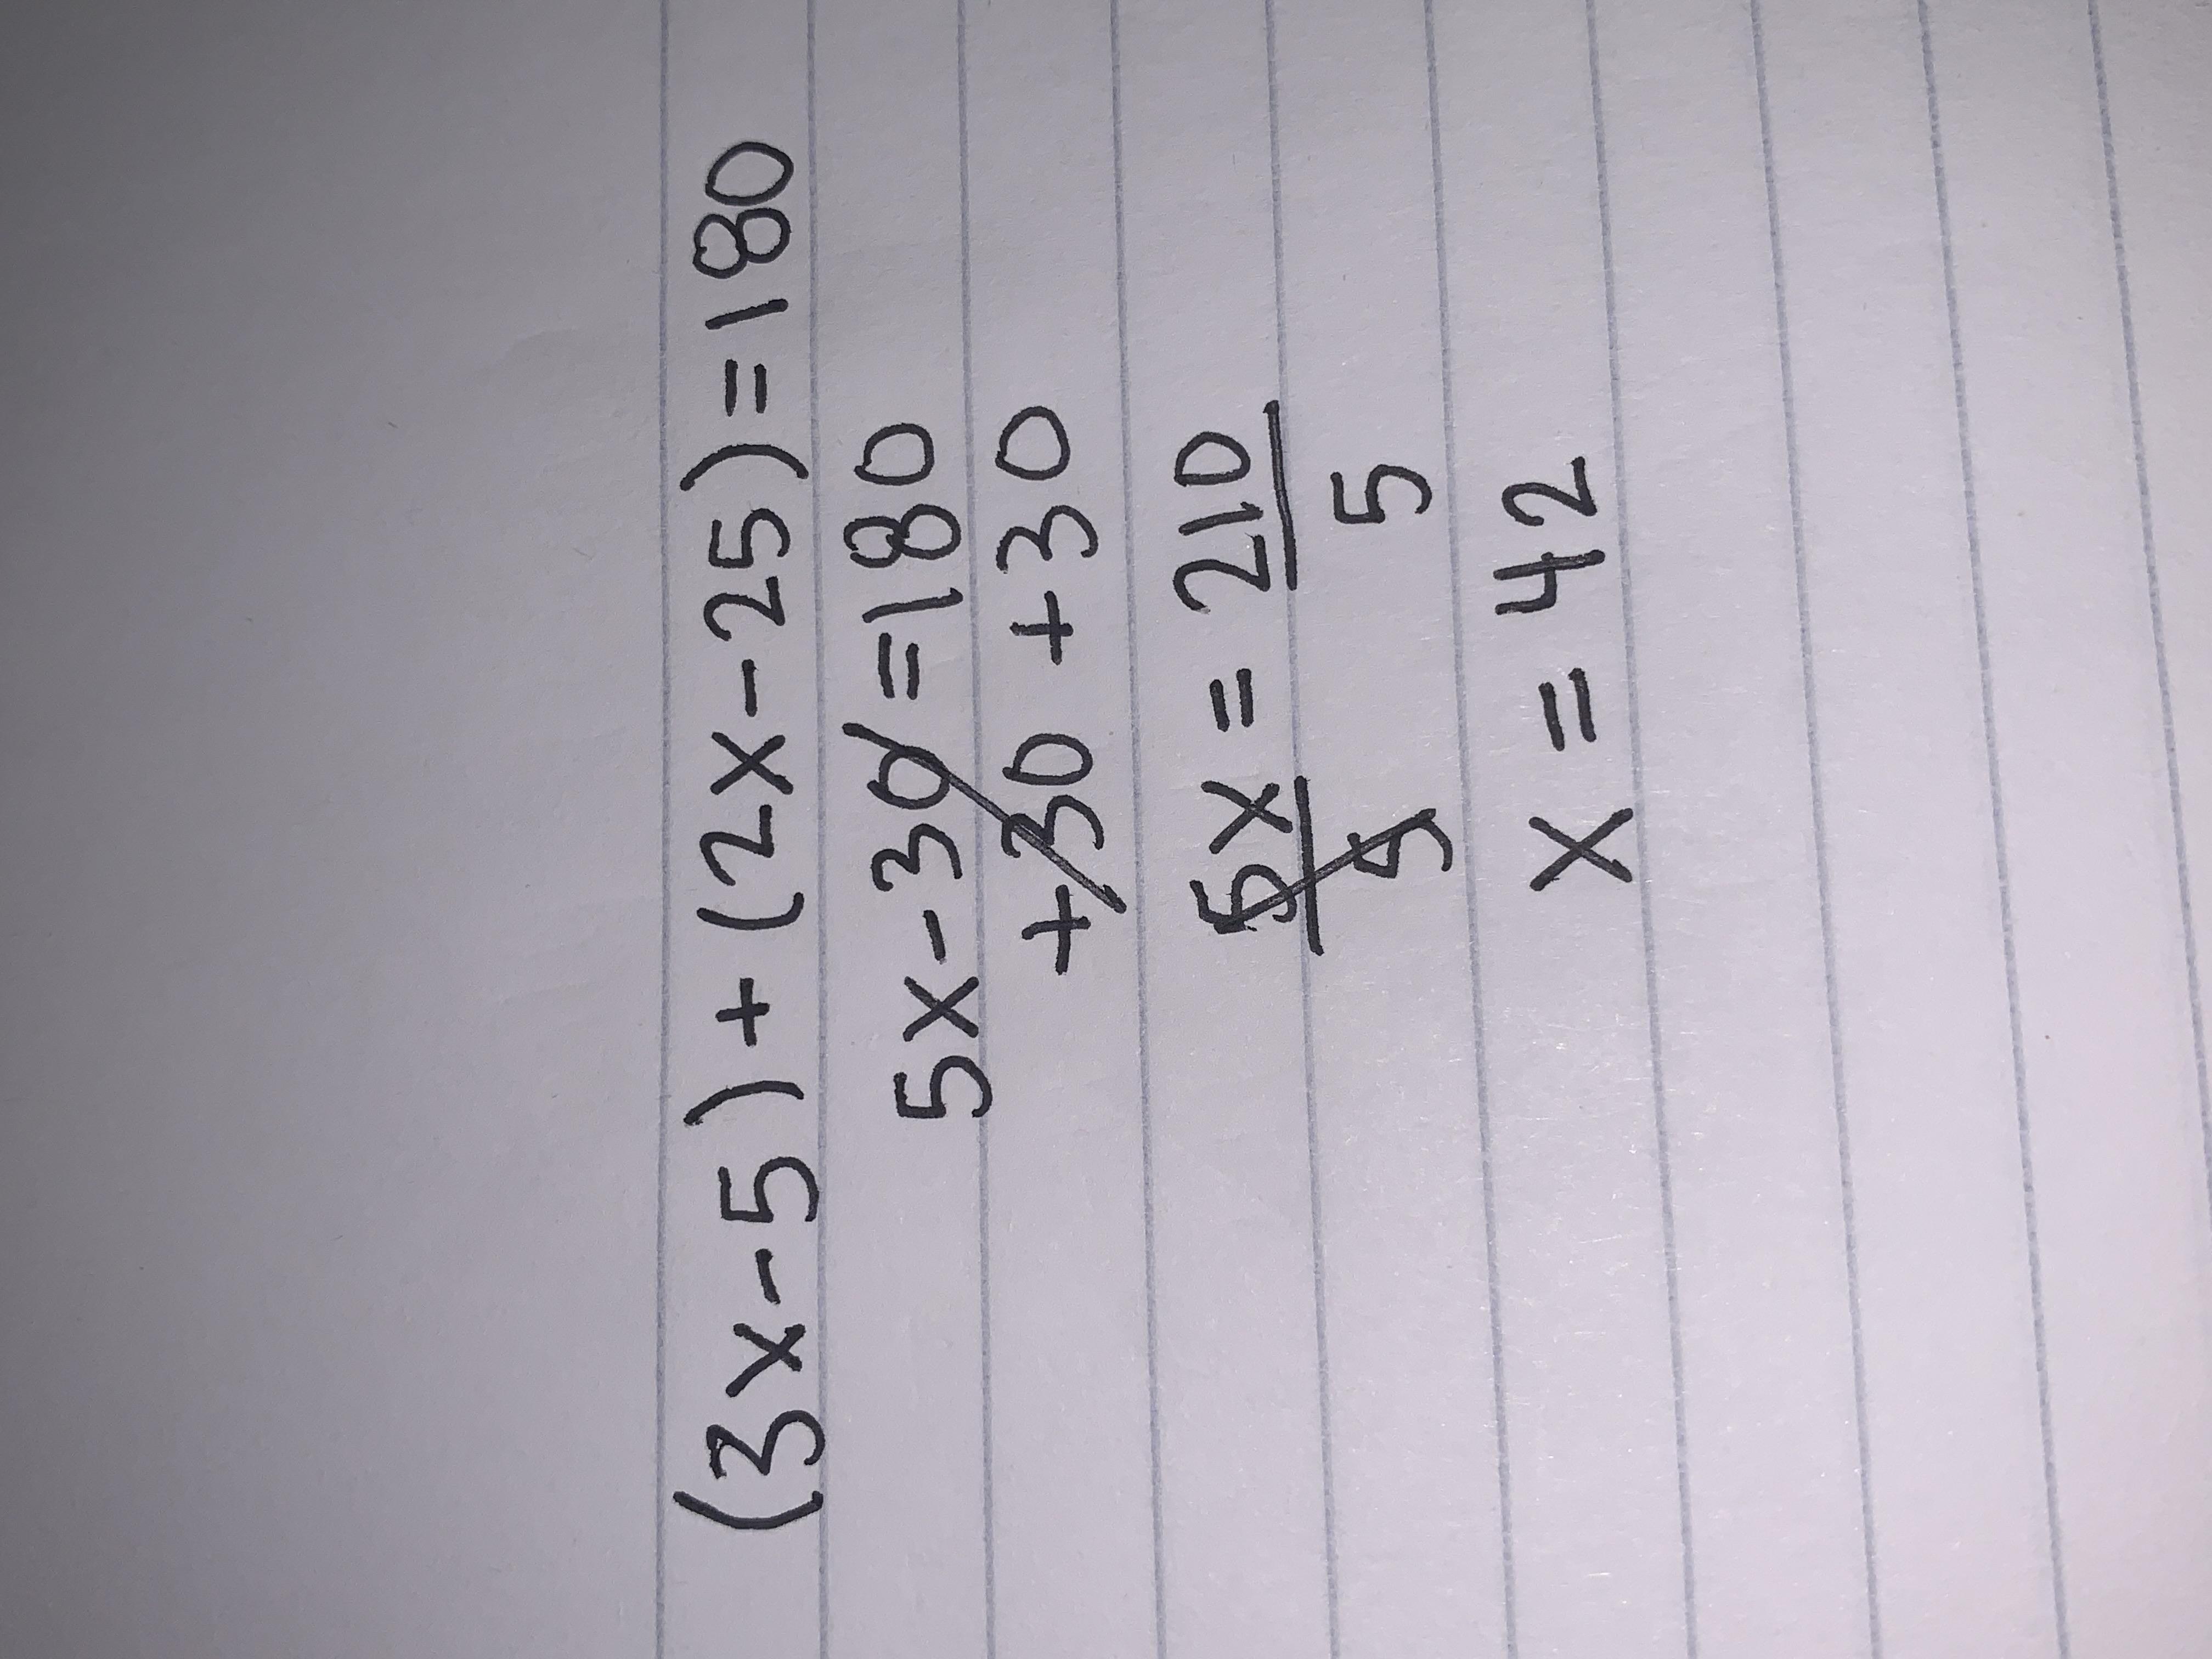 (3x-5)+(2x-25)=180
5x-30=180
+30 +30
5x = 210
5 5
x = 42